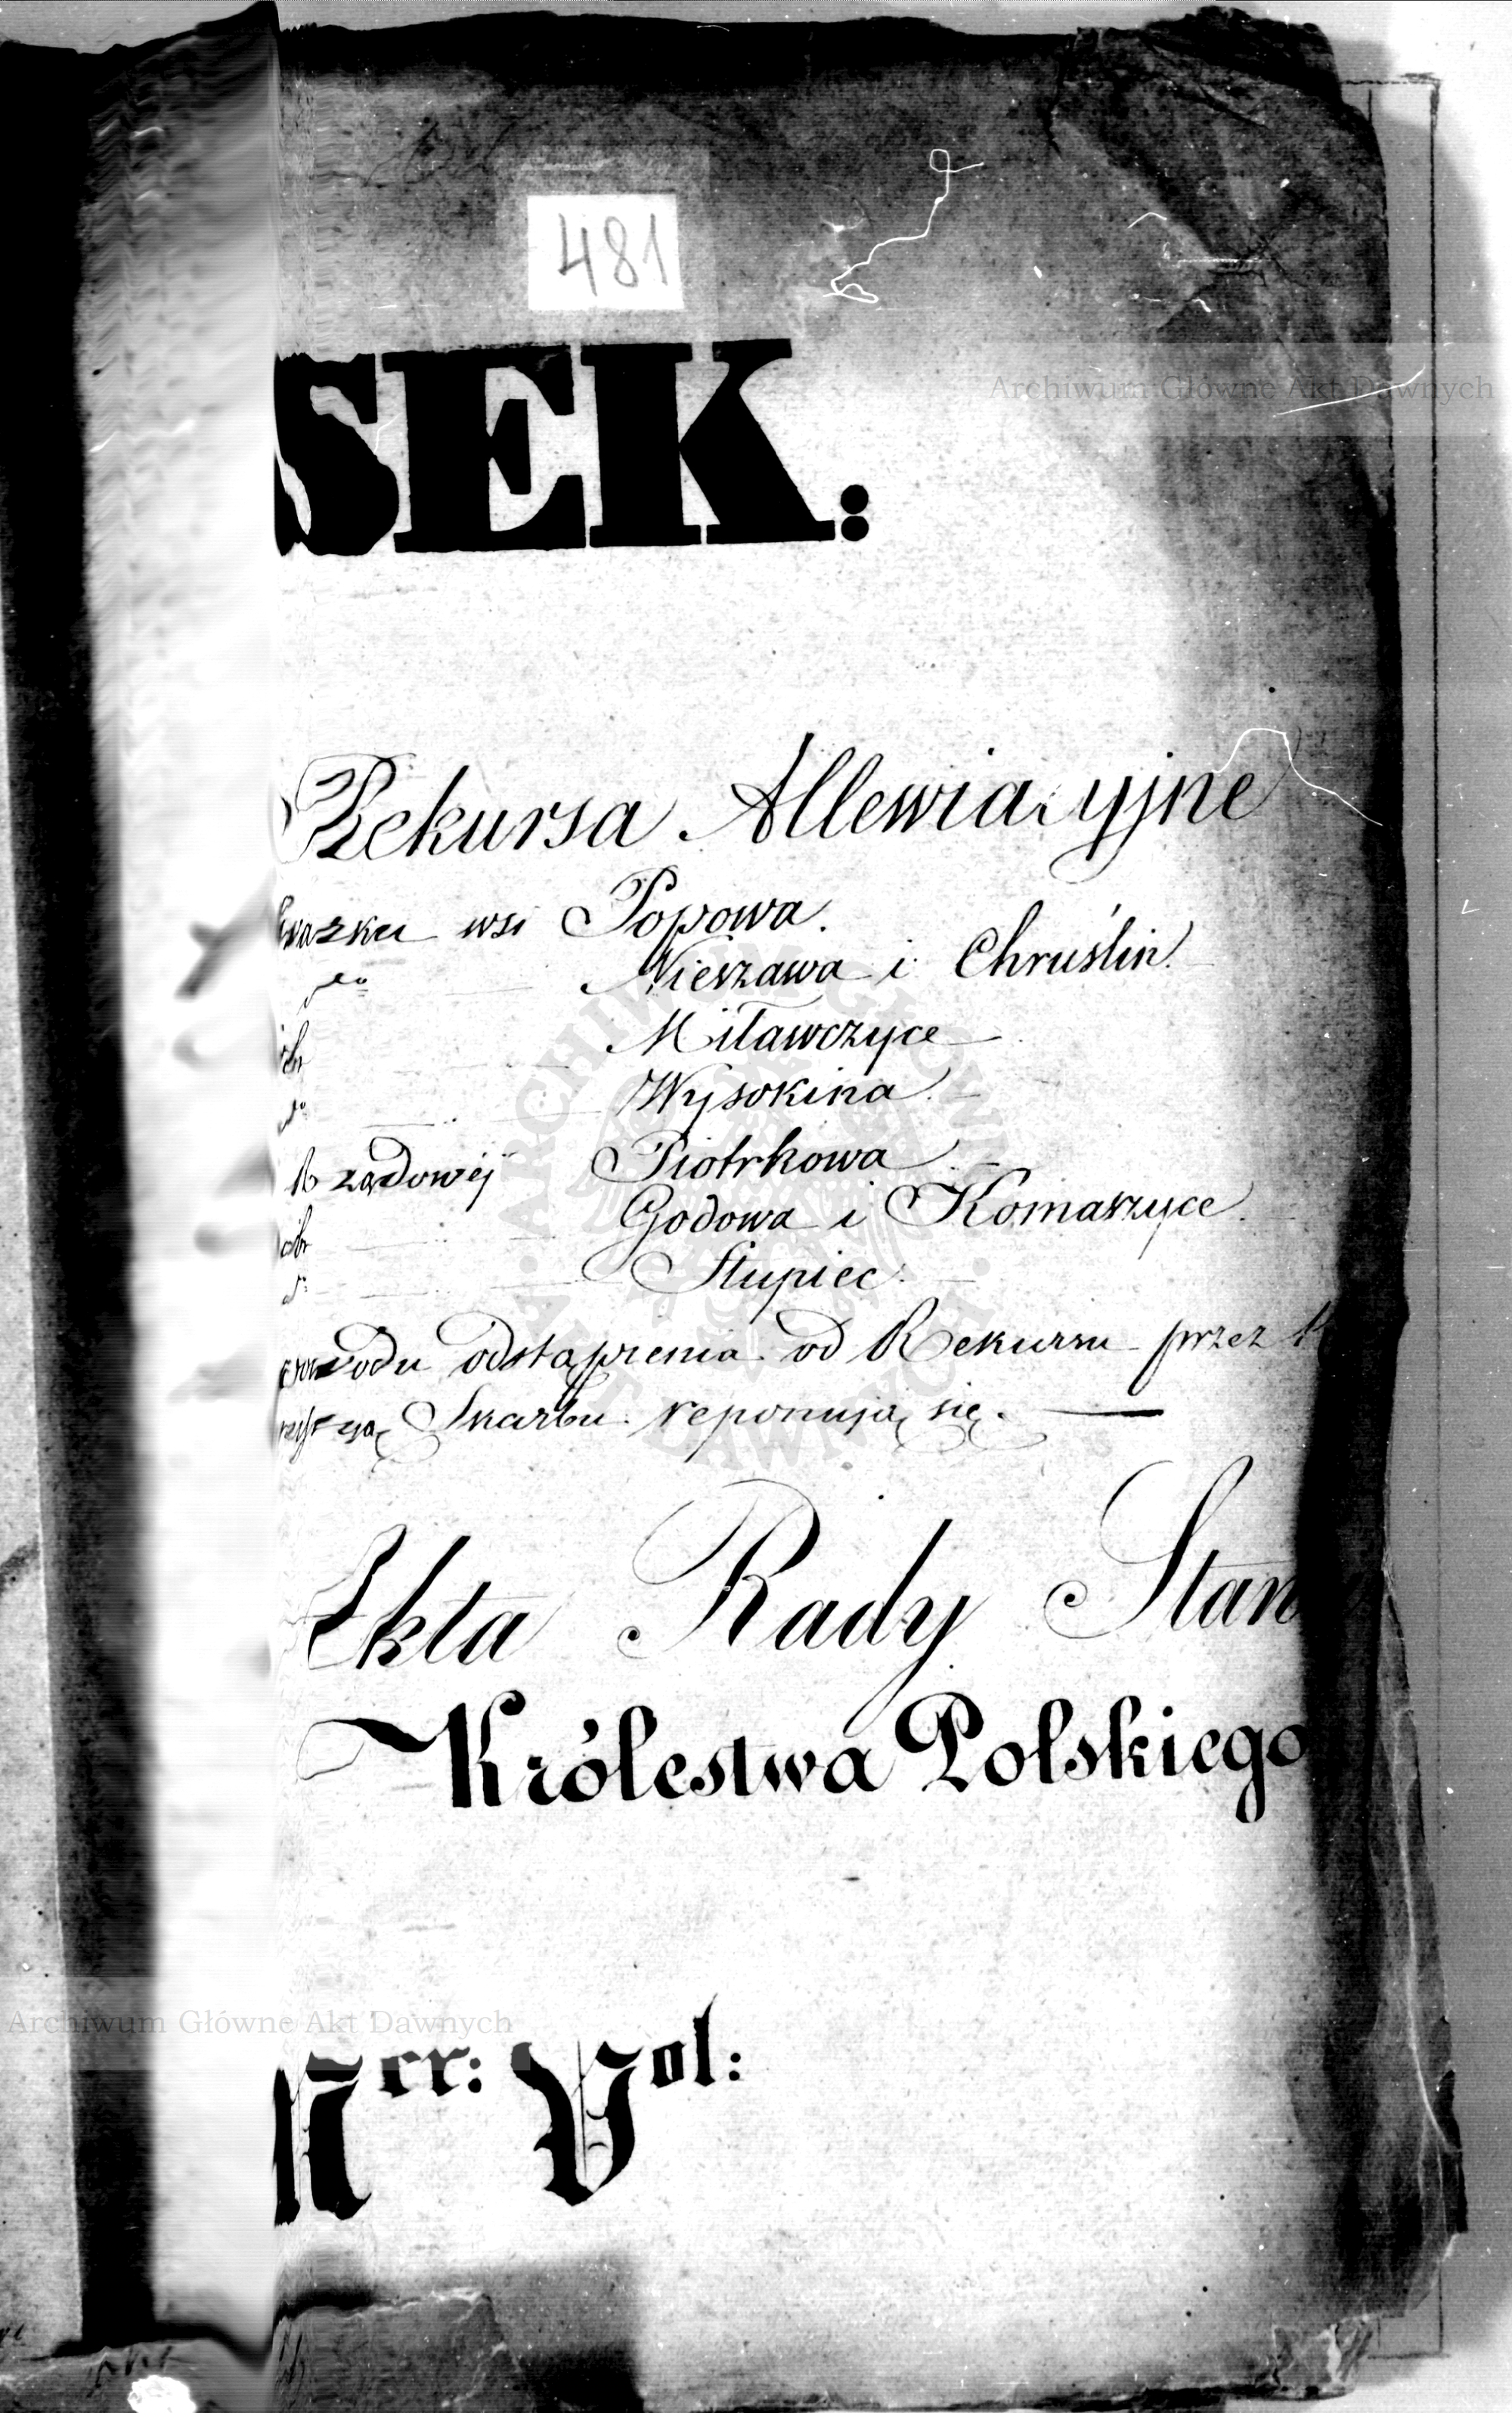 481
SEK:
Archiwum Główne Akt Dawnych
Rekursa Allewiacyjne
wsi Popowa.
do Nieszawa i Chruślin.
Miławczyce
do Wysokina.
Rządowéj Piotrkowa
Godowa i Komaszyce.
do Słupiec.
odstąpienia od Rekursu przez
Skarbu reponują się. —
Akta Rady Stan
Królestwa Polskiego
Archiwum Główne Akt Dawnych
Ner: Vol:
ARCHIWUM GŁÓWNE AKT DAWNYCH